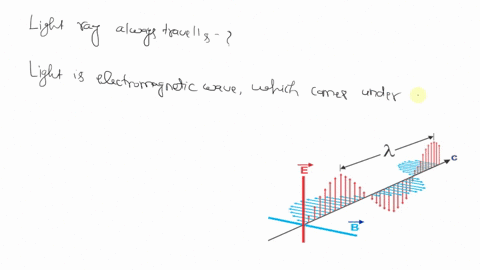 Light ray always travells - ?
Light is electromagnetic wave, which comes under
λ
c
E
B